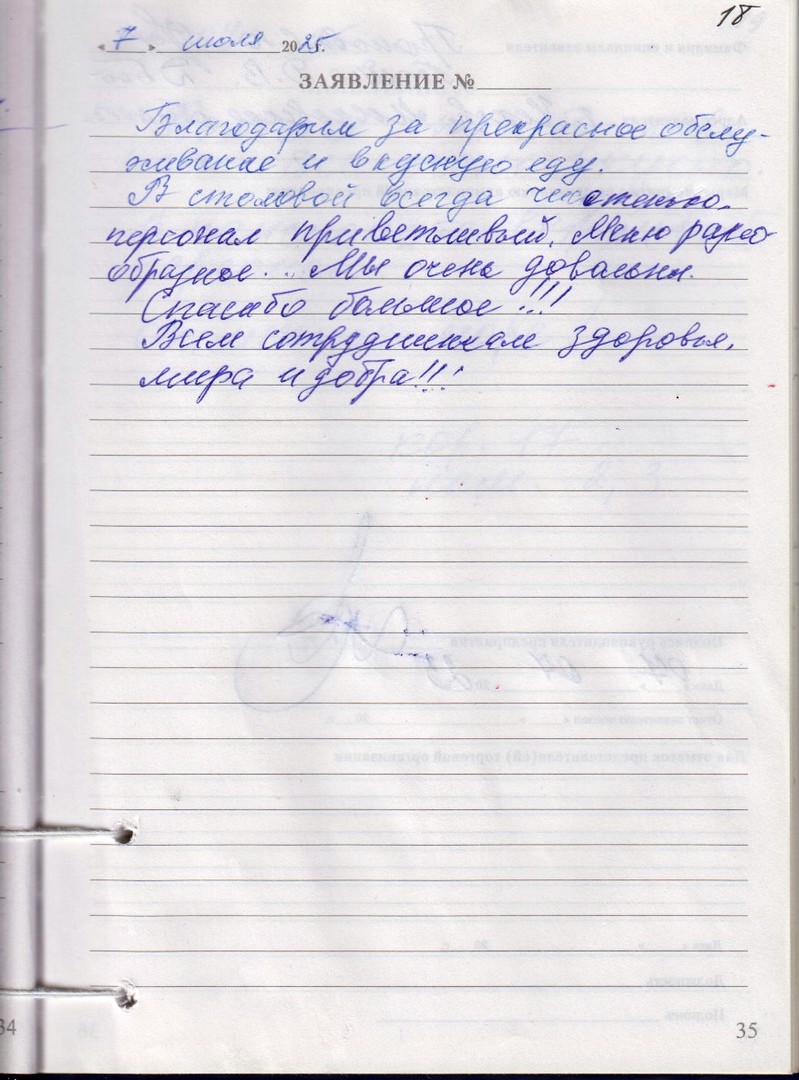 18
« 7 » июля 2025 г.
ЗАЯВЛЕНИЕ №
Благодарим за прекрасное обслу-
живание и вкусную еду.
В столовой всегда чистенько,
персонал приветливый. Меню разно
образное... Мы очень довольны.
Спасибо большое!!!
Всем сотрудникам здоровья,
мира и добра!!!
34
35